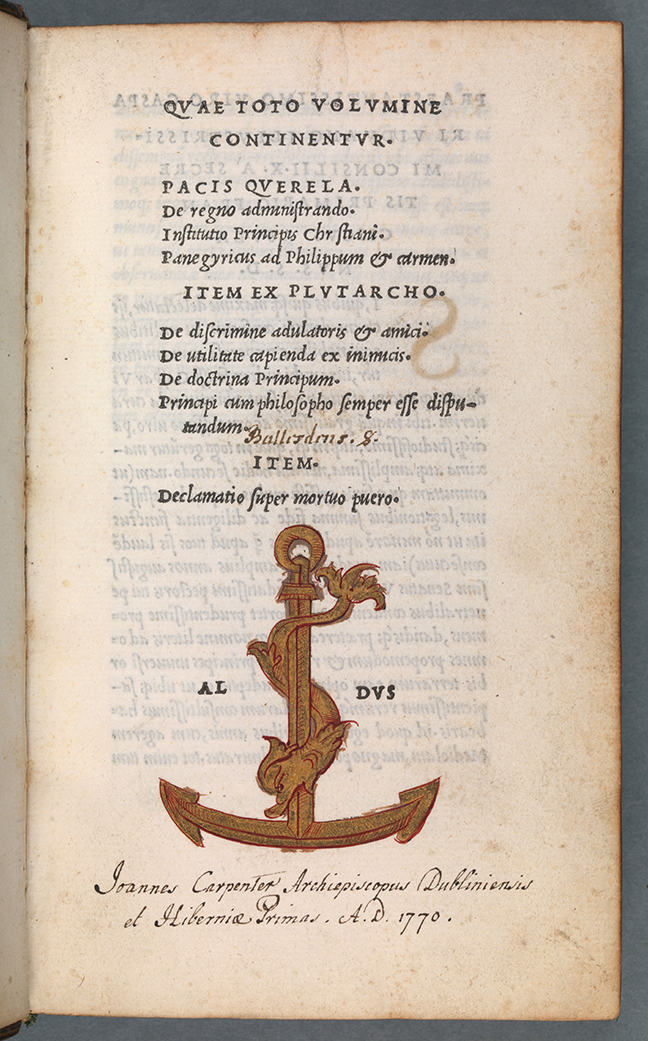 QVAE TOTO VOLVMINE
CONTINENTVR.
PACIS QVERELA.
De regno administrando.
Institutio Principis Chr stiani.
Panegyricus ad Philippum & carmen.
ITEM EX PLVTARCHO.
De discrimine adulatoris & amici.
De utilitate capienda ex inimicis.
De doctrina Principum.
Principi cum philosopho semper esse dispu-
tandum.
ITEM.
Declamatio super mortuo puero.
AL DVS
Joannes Carpenter Archiepiscopus Dubliniensis
et Hiberniæ Primas. A.D. 1770.